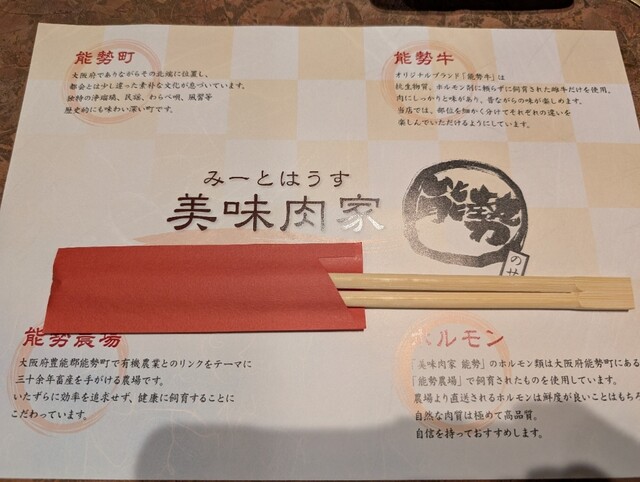 能勢町
大阪府でありながらその北端に位置し、
都会とは少し違った素朴な文化が息づいています。
独特の浄瑠璃、民謡、わらべ唄、風習等
歴史的にも味わい深い町です。
能勢牛
オリジナルブランド「能勢牛」は
抗生物質、ホルモン剤に頼らずに飼育された雌牛だけを使用。
肉にしっかりと味があり、昔ながらの味が楽しめます。
当店では、部位を細かく分けてそれぞれの違いを
楽しんでいただけるようにしています。
みーとはうす
美味肉家
能勢
のせ
能勢農場
大阪府豊能郡能勢町で有機農業とのリンクをテーマに
三十余年畜産を手がける農場です。
いたずらに効率を追求せず、健康に飼育することに
こだわっています。
ホルモン
「美味肉家 能勢」のホルモン類は大阪府能勢町にある
「能勢農場」で飼育されたものを使用しています。
農場より直送されるホルモンは鮮度が良いことはもちろ
自然な肉質は極めて高品質。
自信を持っておすすめします。